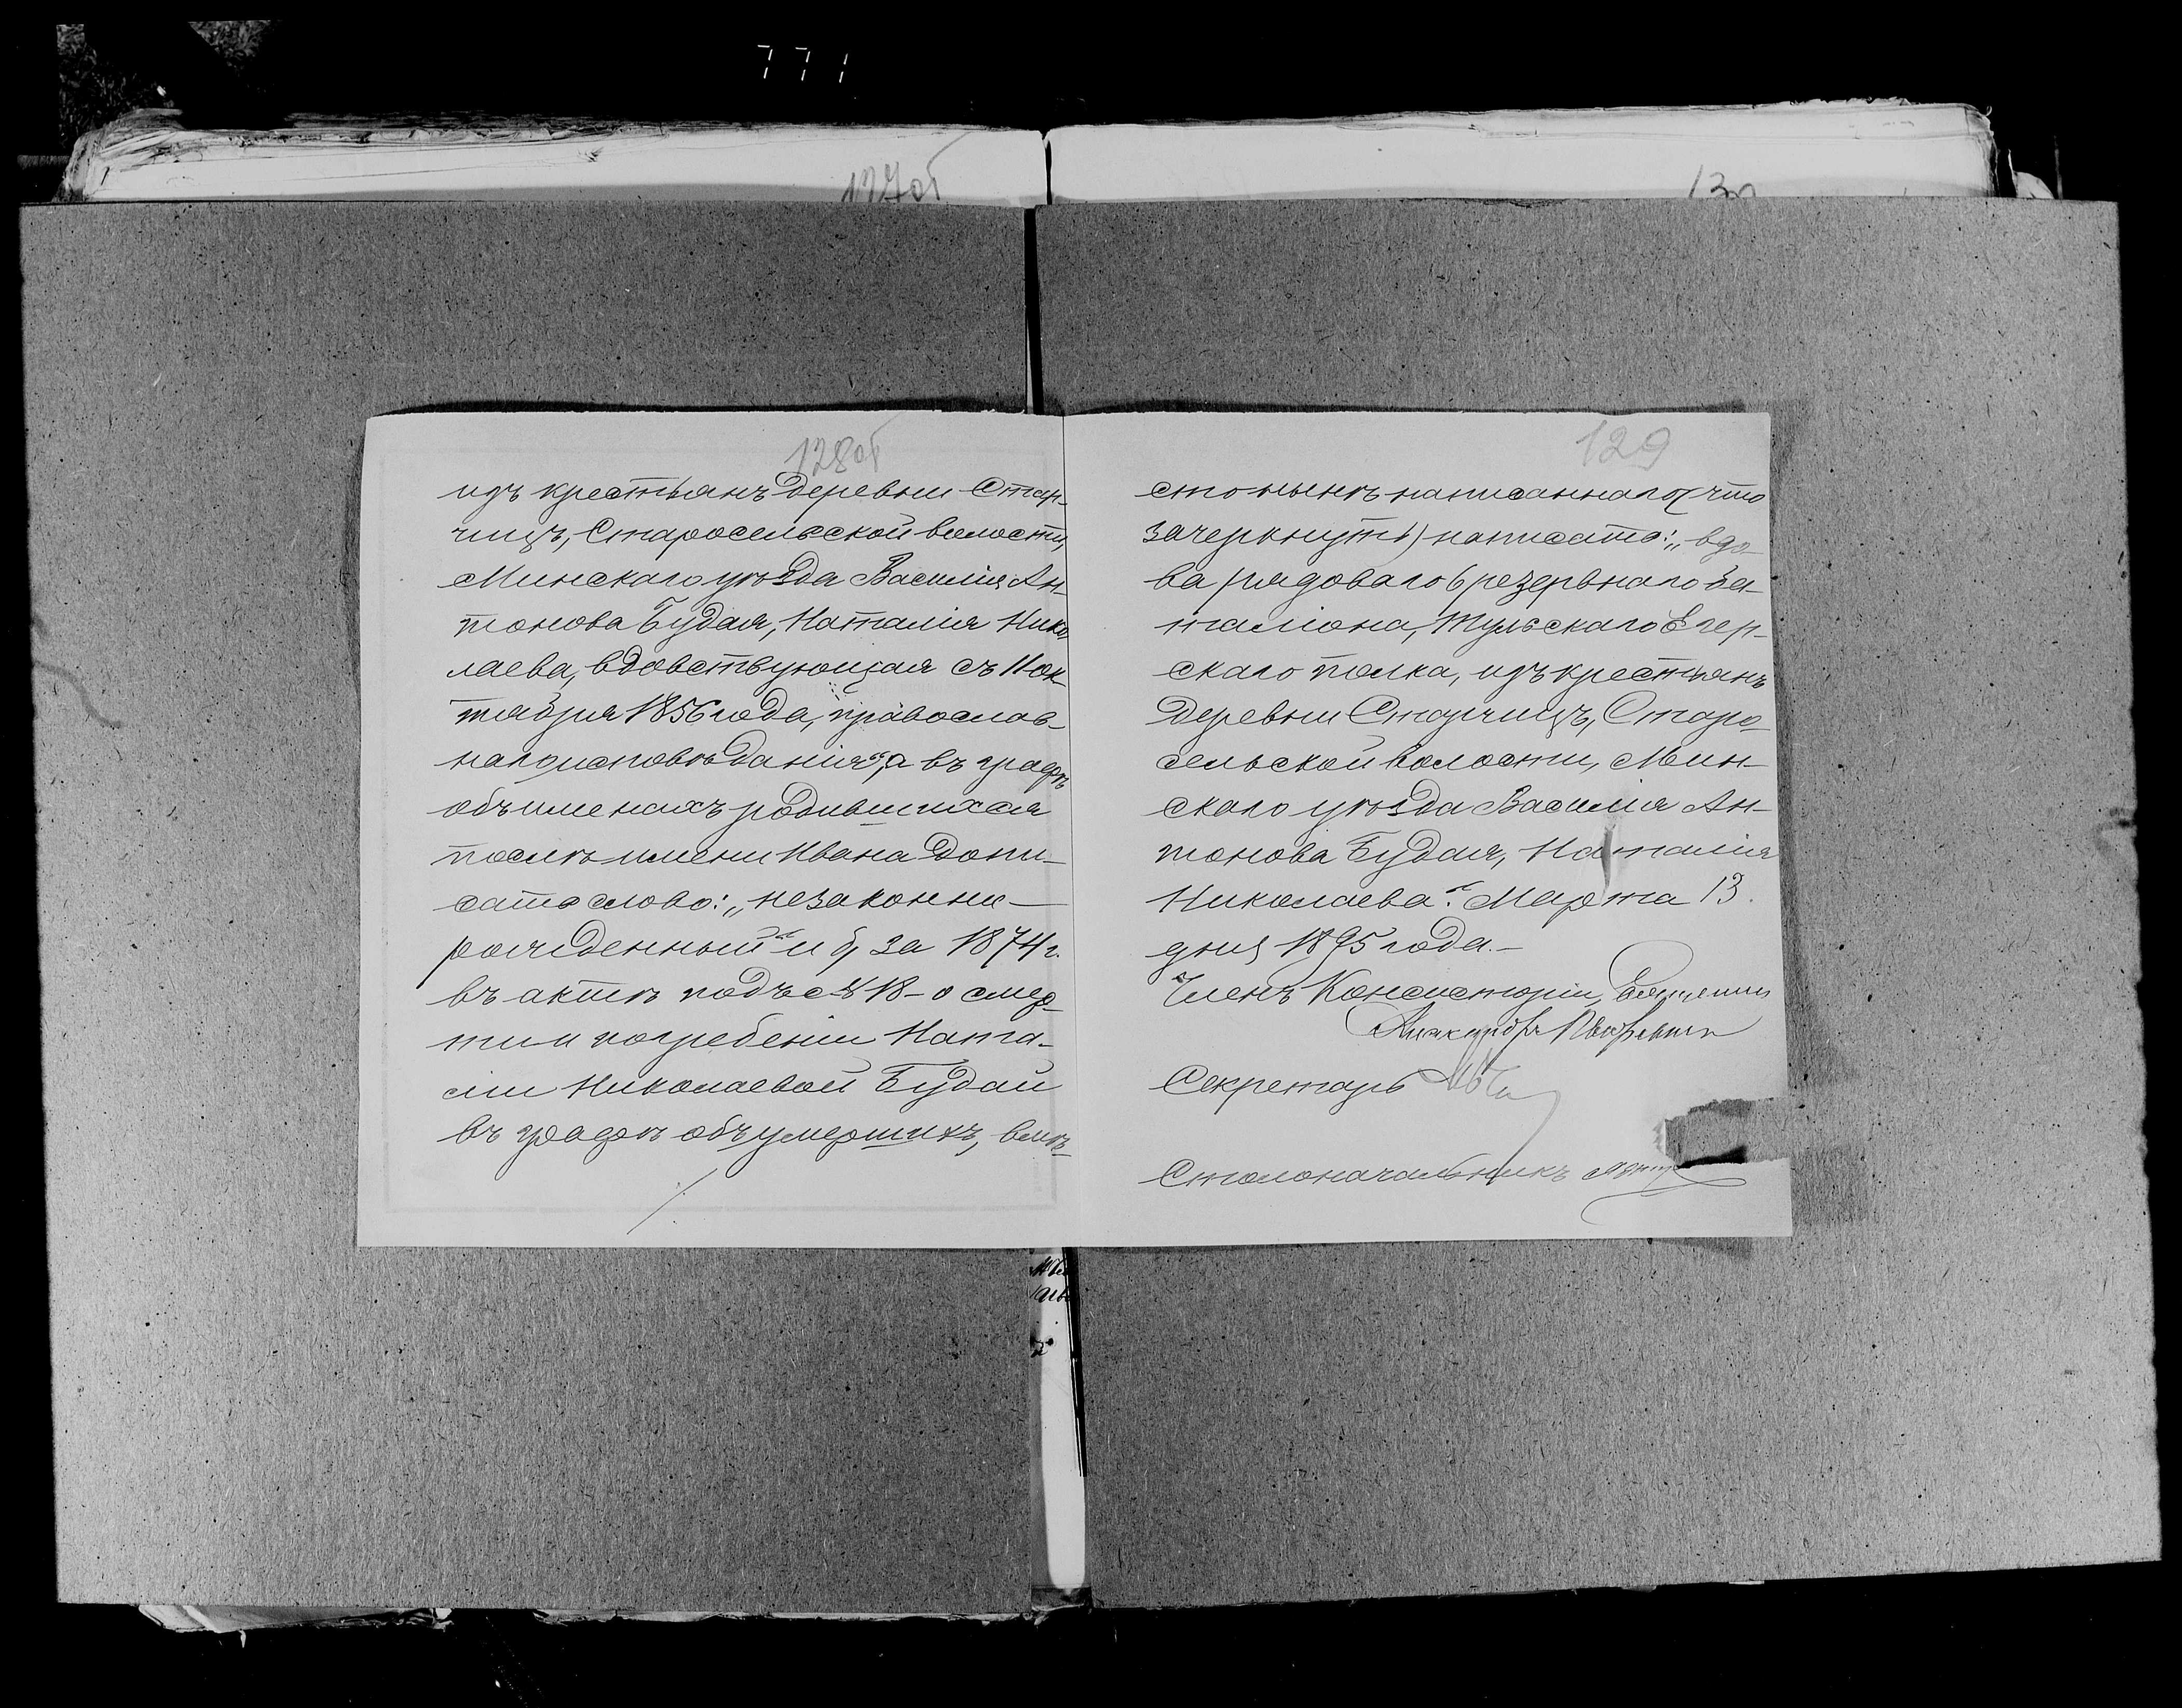 771
127об
130
128об
изъ крестьянъ деревни Стар-
чицъ, Старосельской волости,
Минскаго уѣзда Василія Ан-
тонова Будая, Наталія Нико
лаева, вдовствующая съ 11 ок-
тября 1856 года, православ-
наго исповѣданія", а въ графѣ
объ именахъ родившихся
послѣ имени Ивана допи-
сать слово: „незаконно-
рожденный" и б, за 1874 г.
въ актѣ подъ № 18 - о смер-
ти и погребеніи Ната-
ліи Николаевой Будай
въ графѣ объ умершихъ, вмѣ-
129
сто нынѣ написаннаго (что
зачеркнуть) написать: „вдо-
ва рядоваго 6 резервнаго ба-
таліона, Тульскаго Егер-
скаго полка, изъ крестьянъ
деревни Старчицъ, Старо-
сельской волости, Мин-
скаго уѣзда Василія Ан-
тонова Будая, Наталія
Николаева". Марта 13
дня 1895 года.-
Членъ Консисторіи, Священникъ
Александръ
Секретарь
Столоначальникъ